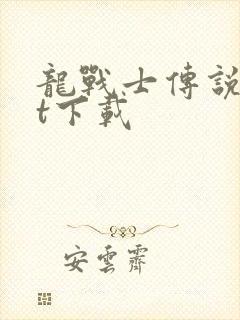 龍戰士傳說
t下載
安雲霽